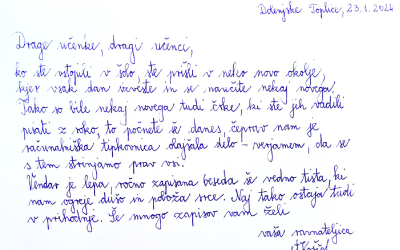 Dolenjske Toplice, 23.1.2024
Drage učenke, dragi učenci,
ko ste vstopili v šolo, ste prišli v neko novo okolje,
kjer vsak dan izveste in se naučite nekaj novega.
Tako so bile nekaj novega tudi črke, ki ste jih vadili
pisati z roko, to počnete še danes, čeprav nam je
računalniška tipkovnica olajšala delo - verjamem, da se
s tem strinjamo prav vsi.
Vendar je lepa, ročno zapisana beseda še vedno tista, ki
nam ogreje dušo in poboža srce. Naj tako ostaja tudi
v prihodnje. Še mnogo zapisov vam želi
vaša ravnateljica